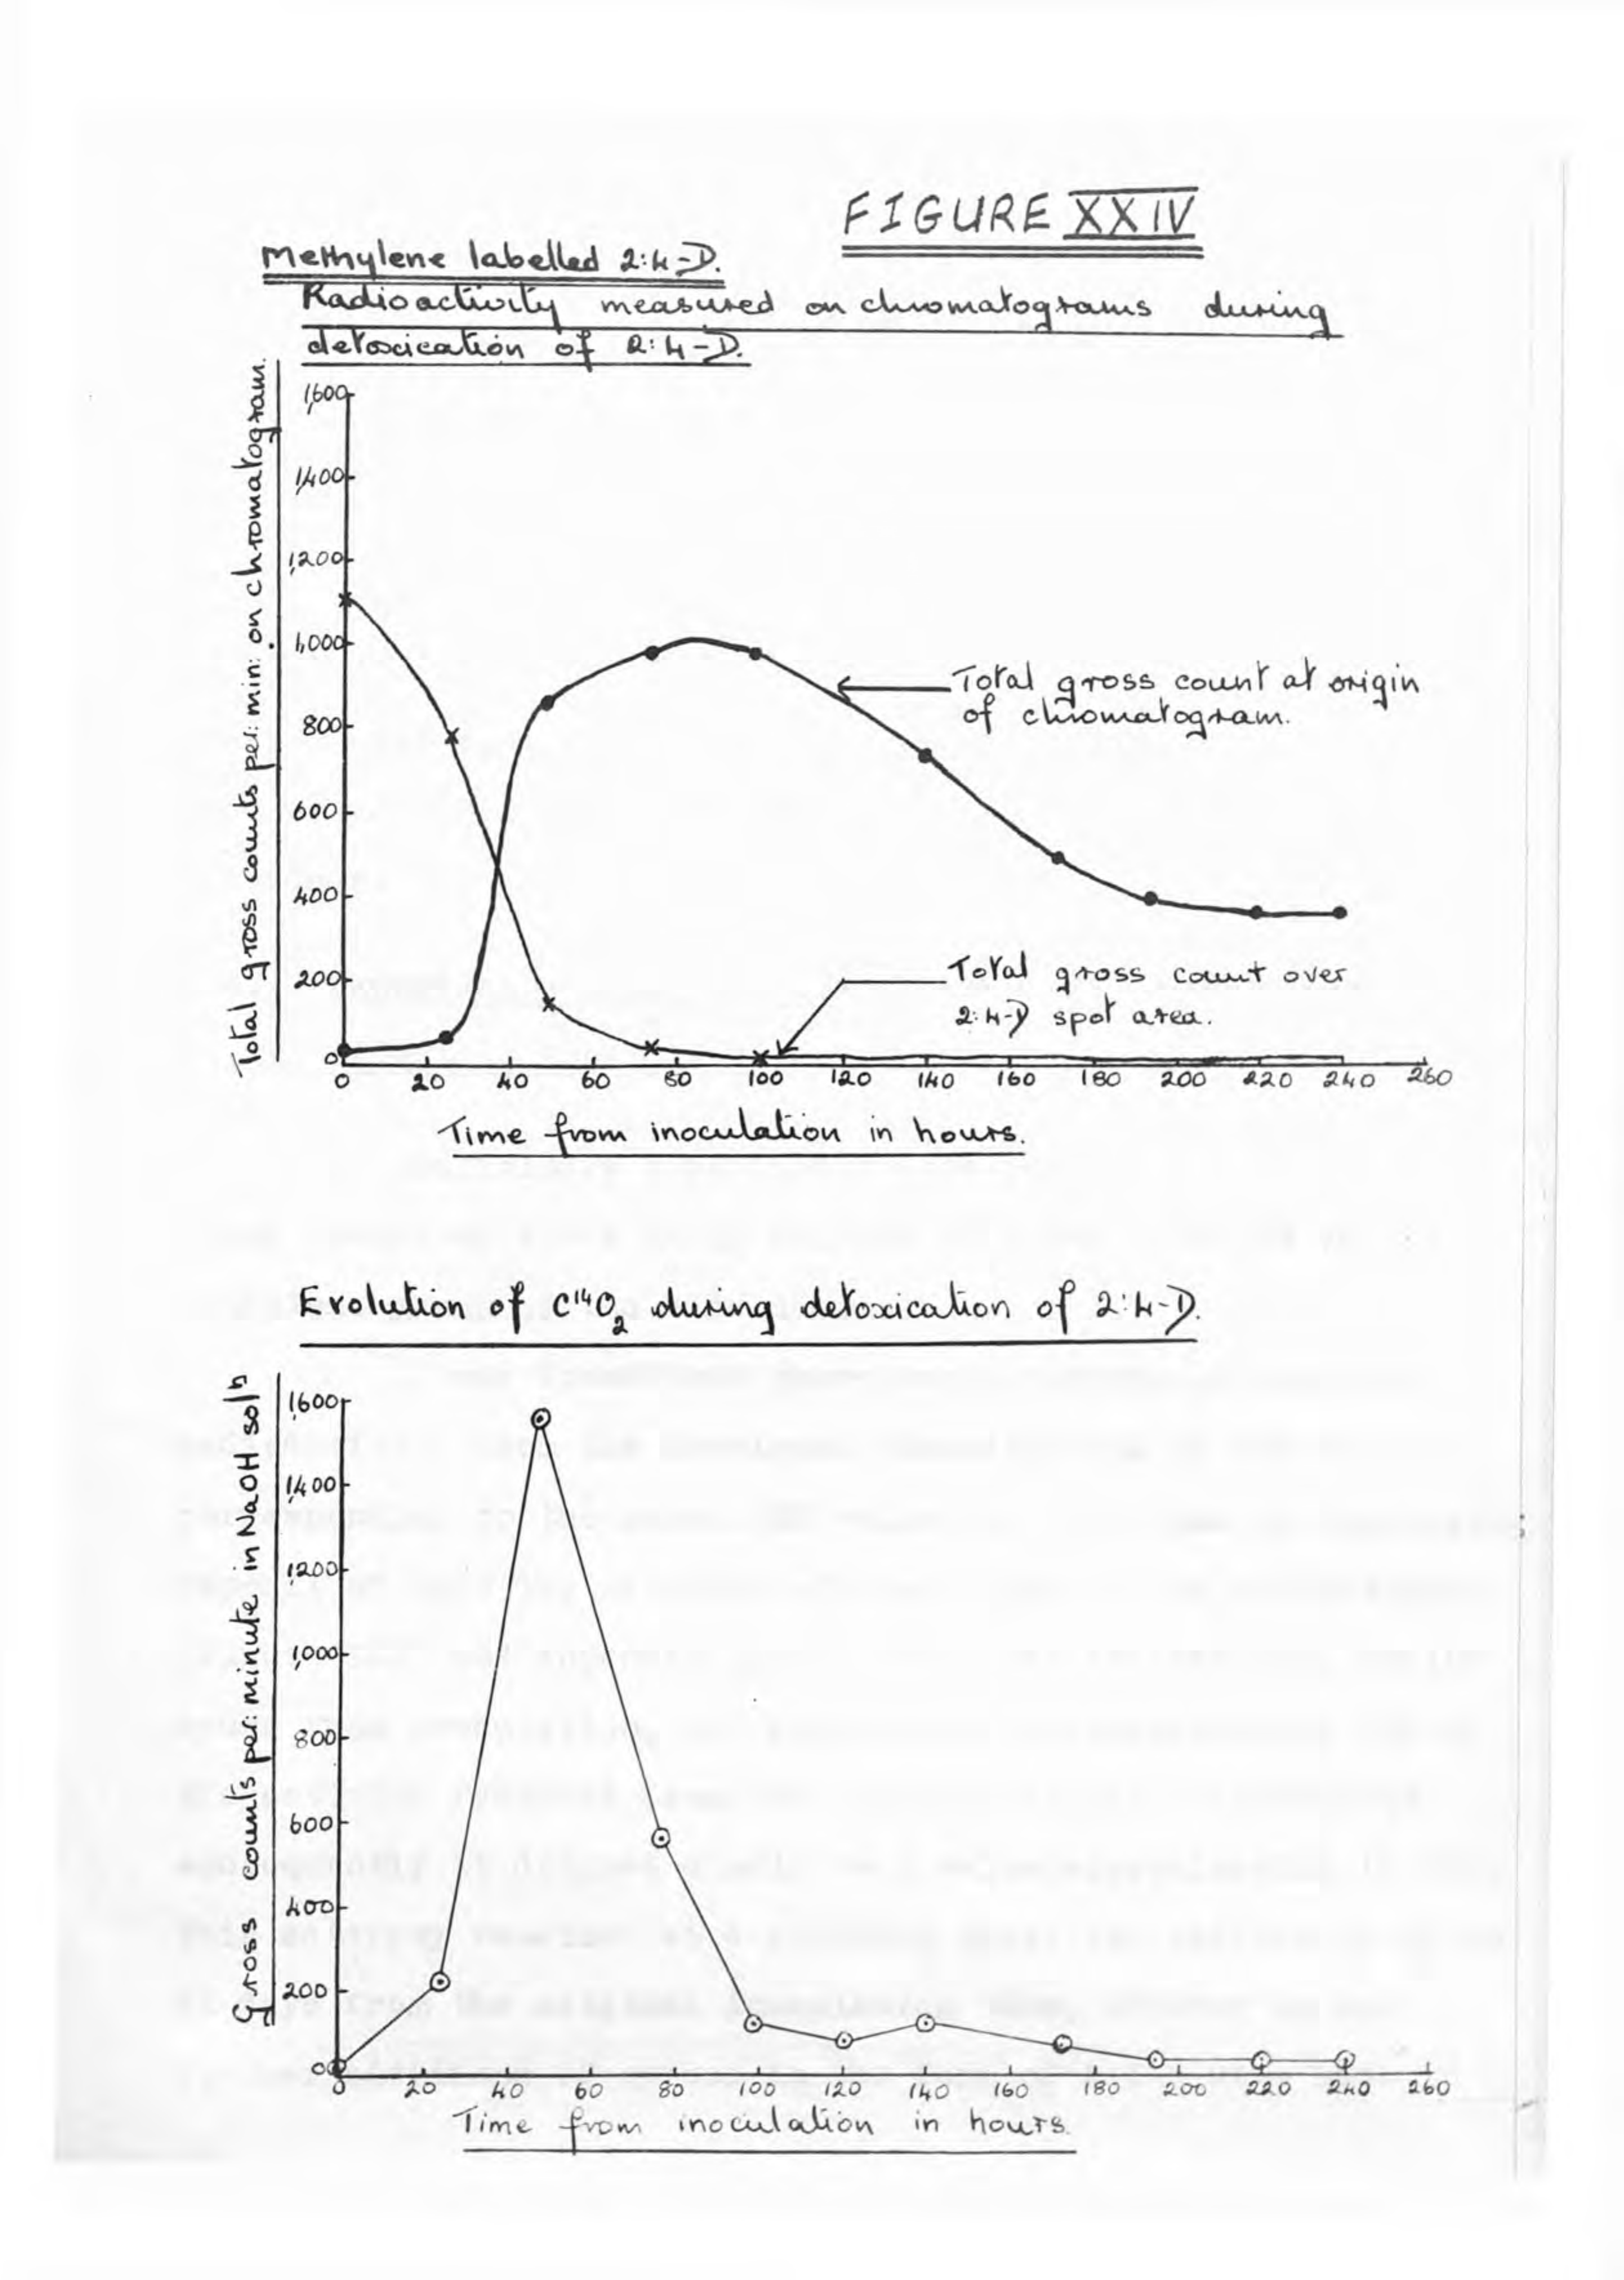 FIGURE XXIV
Methylene labelled 2:4-D.
Radioactivity measured on chromatograms during
detoxication of 2:4-D.
Total gross counts per: min: on chromatogram.
1,600
1,400
1,200
1,000
800
600
400
200
0
Total gross count at origin
of chromatogram.
Total gross count over
2:4-D spot area.
0 20 40 60 80 100 120 140 160 180 200 220 240 260
Time from inoculation in hours.
Evolution of C¹⁴O₂ during detoxication of 2:4-D.
Gross counts per: minute in NaOH solⁿ
1,600
1,400
1,200
1,000
800
600
400
200
0
0 20 40 60 80 100 120 140 160 180 200 220 240 260
Time from inoculation in hours.